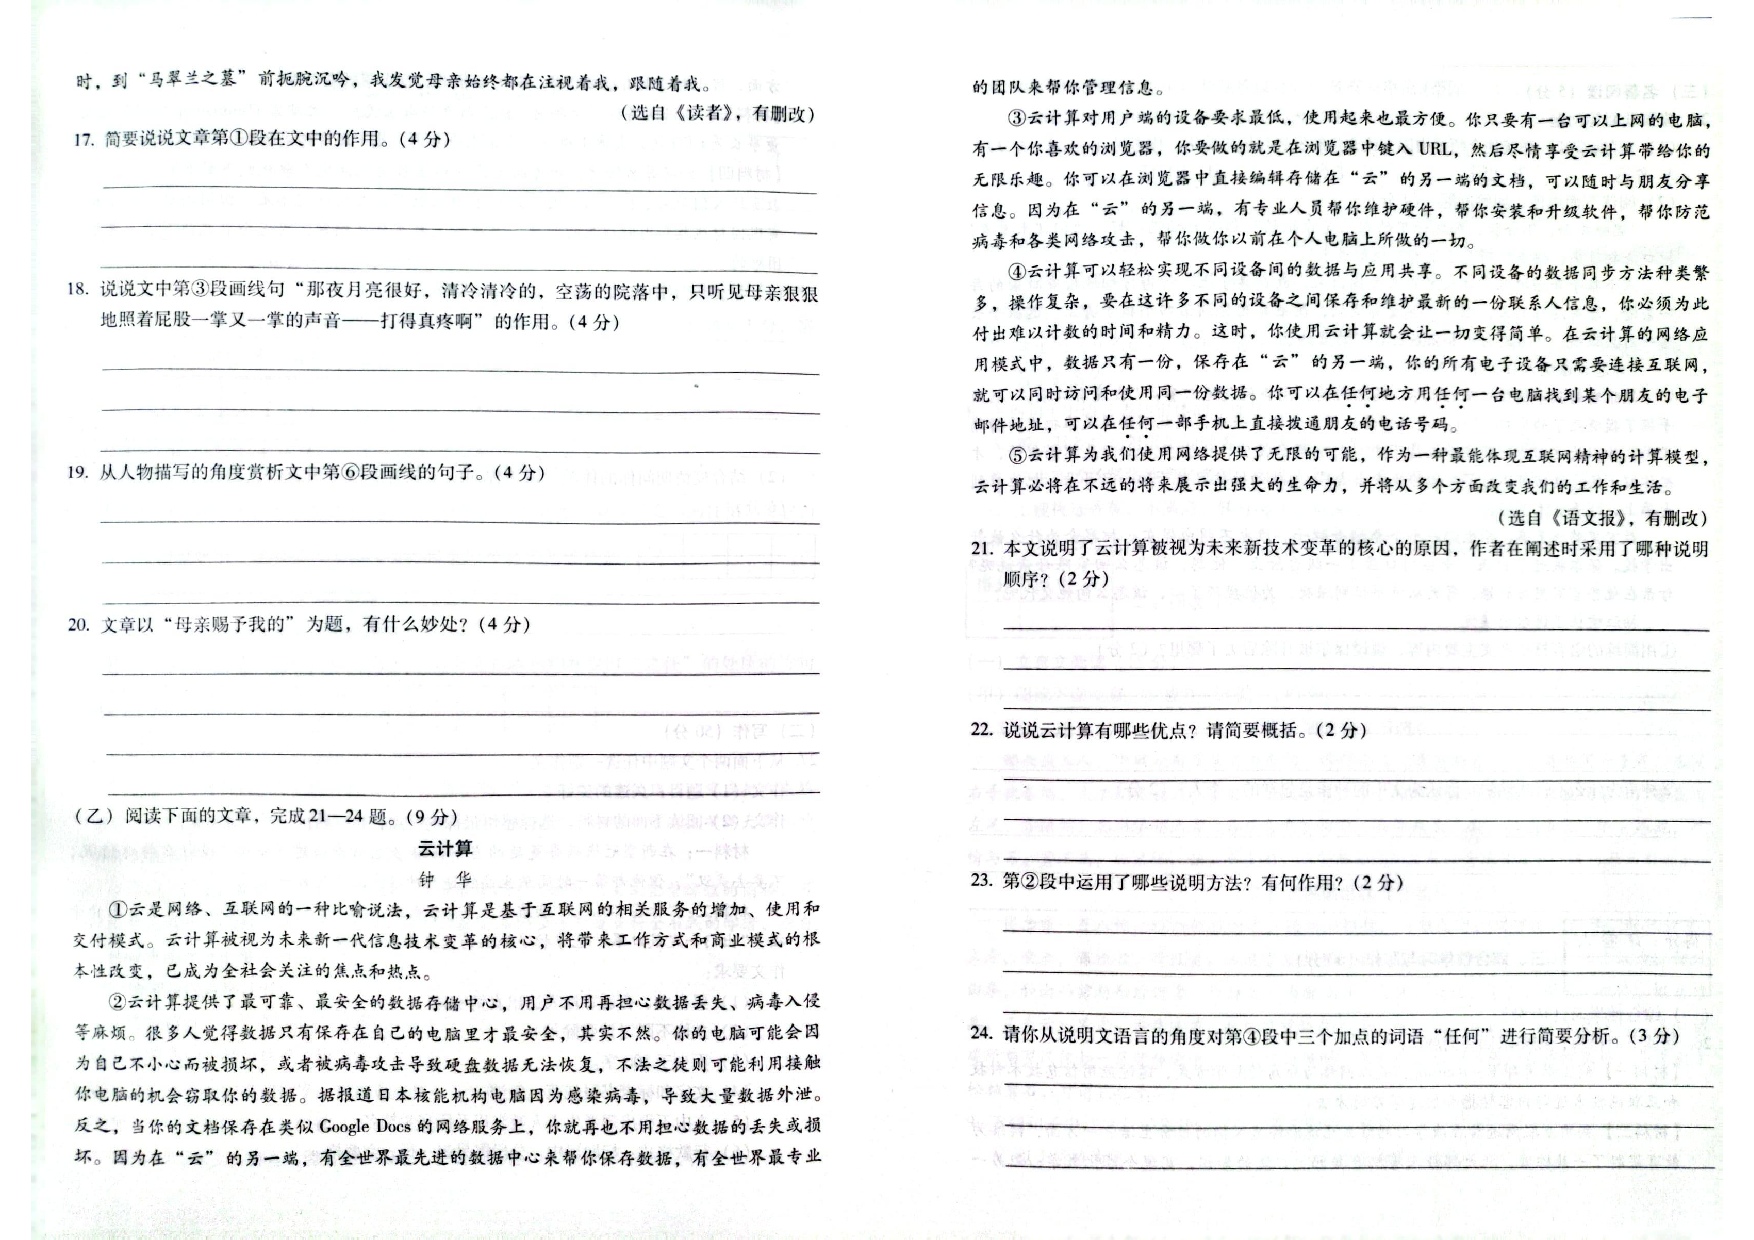 时，到“马翠兰之墓”前扼腕沉吟，我发觉母亲始终都在注视着我，跟随着我。
（选自《读者》，有删改）
17. 简要说说文章第①段在文中的作用。(4 分)
18. 说说文中第③段画线句“那夜月亮很好，清冷清冷的，空荡的院落中，只听见母亲狠狠
地照着屁股一掌又一掌的声音——打得真疼啊”的作用。(4 分)
19. 从人物描写的角度赏析文中第⑥段画线的句子。(4 分)
20. 文章以“母亲赐予我的”为题，有什么妙处？(4 分)
（乙）阅读下面的文章，完成21—24 题。(9 分)
云计算
钟 华
①云是网络、互联网的一种比喻说法，云计算是基于互联网的相关服务的增加、使用和
交付模式。云计算被视为未来新一代信息技术变革的核心，将带来工作方式和商业模式的根
本性改变，已成为全社会关注的焦点和热点。
②云计算提供了最可靠、最安全的数据存储中心，用户不用再担心数据丢失、病毒入侵
等麻烦。很多人觉得数据只有保存在自己的电脑里才最安全，其实不然。你的电脑可能会因
为自己不小心而被损坏，或者被病毒攻击导致硬盘数据无法恢复，不法之徒则可能利用接触
你电脑的机会窃取你的数据。据报道日本核能机构电脑因为感染病毒，导致大量数据外泄。
反之，当你的文档保存在类似 Google Docs 的网络服务上，你就再也不用担心数据的丢失或损
坏。因为在“云”的另一端，有全世界最先进的数据中心来帮你保存数据，有全世界最专业
的团队来帮你管理信息。
③云计算对用户端的设备要求最低，使用起来也最方便。你只要有一台可以上网的电脑，
有一个你喜欢的浏览器，你要做的就是在浏览器中键入 URL，然后尽情享受云计算带给你的
无限乐趣。你可以在浏览器中直接编辑存储在“云”的另一端的文档，可以随时与朋友分享
信息。因为在“云”的另一端，有专业人员帮你维护硬件，帮你安装和升级软件，帮你防范
病毒和各类网络攻击，帮你做你以前在个人电脑上所做的一切。
④云计算可以轻松实现不同设备间的数据与应用共享。不同设备的数据同步方法种类繁
多，操作复杂，要在这许多不同的设备之间保存和维护最新的一份联系人信息，你必须为此
付出难以计数的时间和精力。这时，你使用云计算就会让一切变得简单。在云计算的网络应
用模式中，数据只有一份，保存在“云”的另一端，你的所有电子设备只需要连接互联网，
就可以同时访问和使用同一份数据。你可以在任何地方用任何一台电脑找到某个朋友的电子
邮件地址，可以在任何一部手机上直接拨通朋友的电话号码。
⑤云计算为我们使用网络提供了无限的可能，作为一种最能体现互联网精神的计算模型，
云计算必将在不远的将来展示出强大的生命力，并将从多个方面改变我们的工作和生活。
（选自《语文报》，有删改）
21. 本文说明了云计算被视为未来新技术变革的核心的原因，作者在阐述时采用了哪种说明
顺序？(2 分)
22. 说说云计算有哪些优点？请简要概括。(2 分)
23. 第②段中运用了哪些说明方法？有何作用？(2 分)
24. 请你从说明文语言的角度对第④段中三个加点的词语“任何”进行简要分析。(3 分)